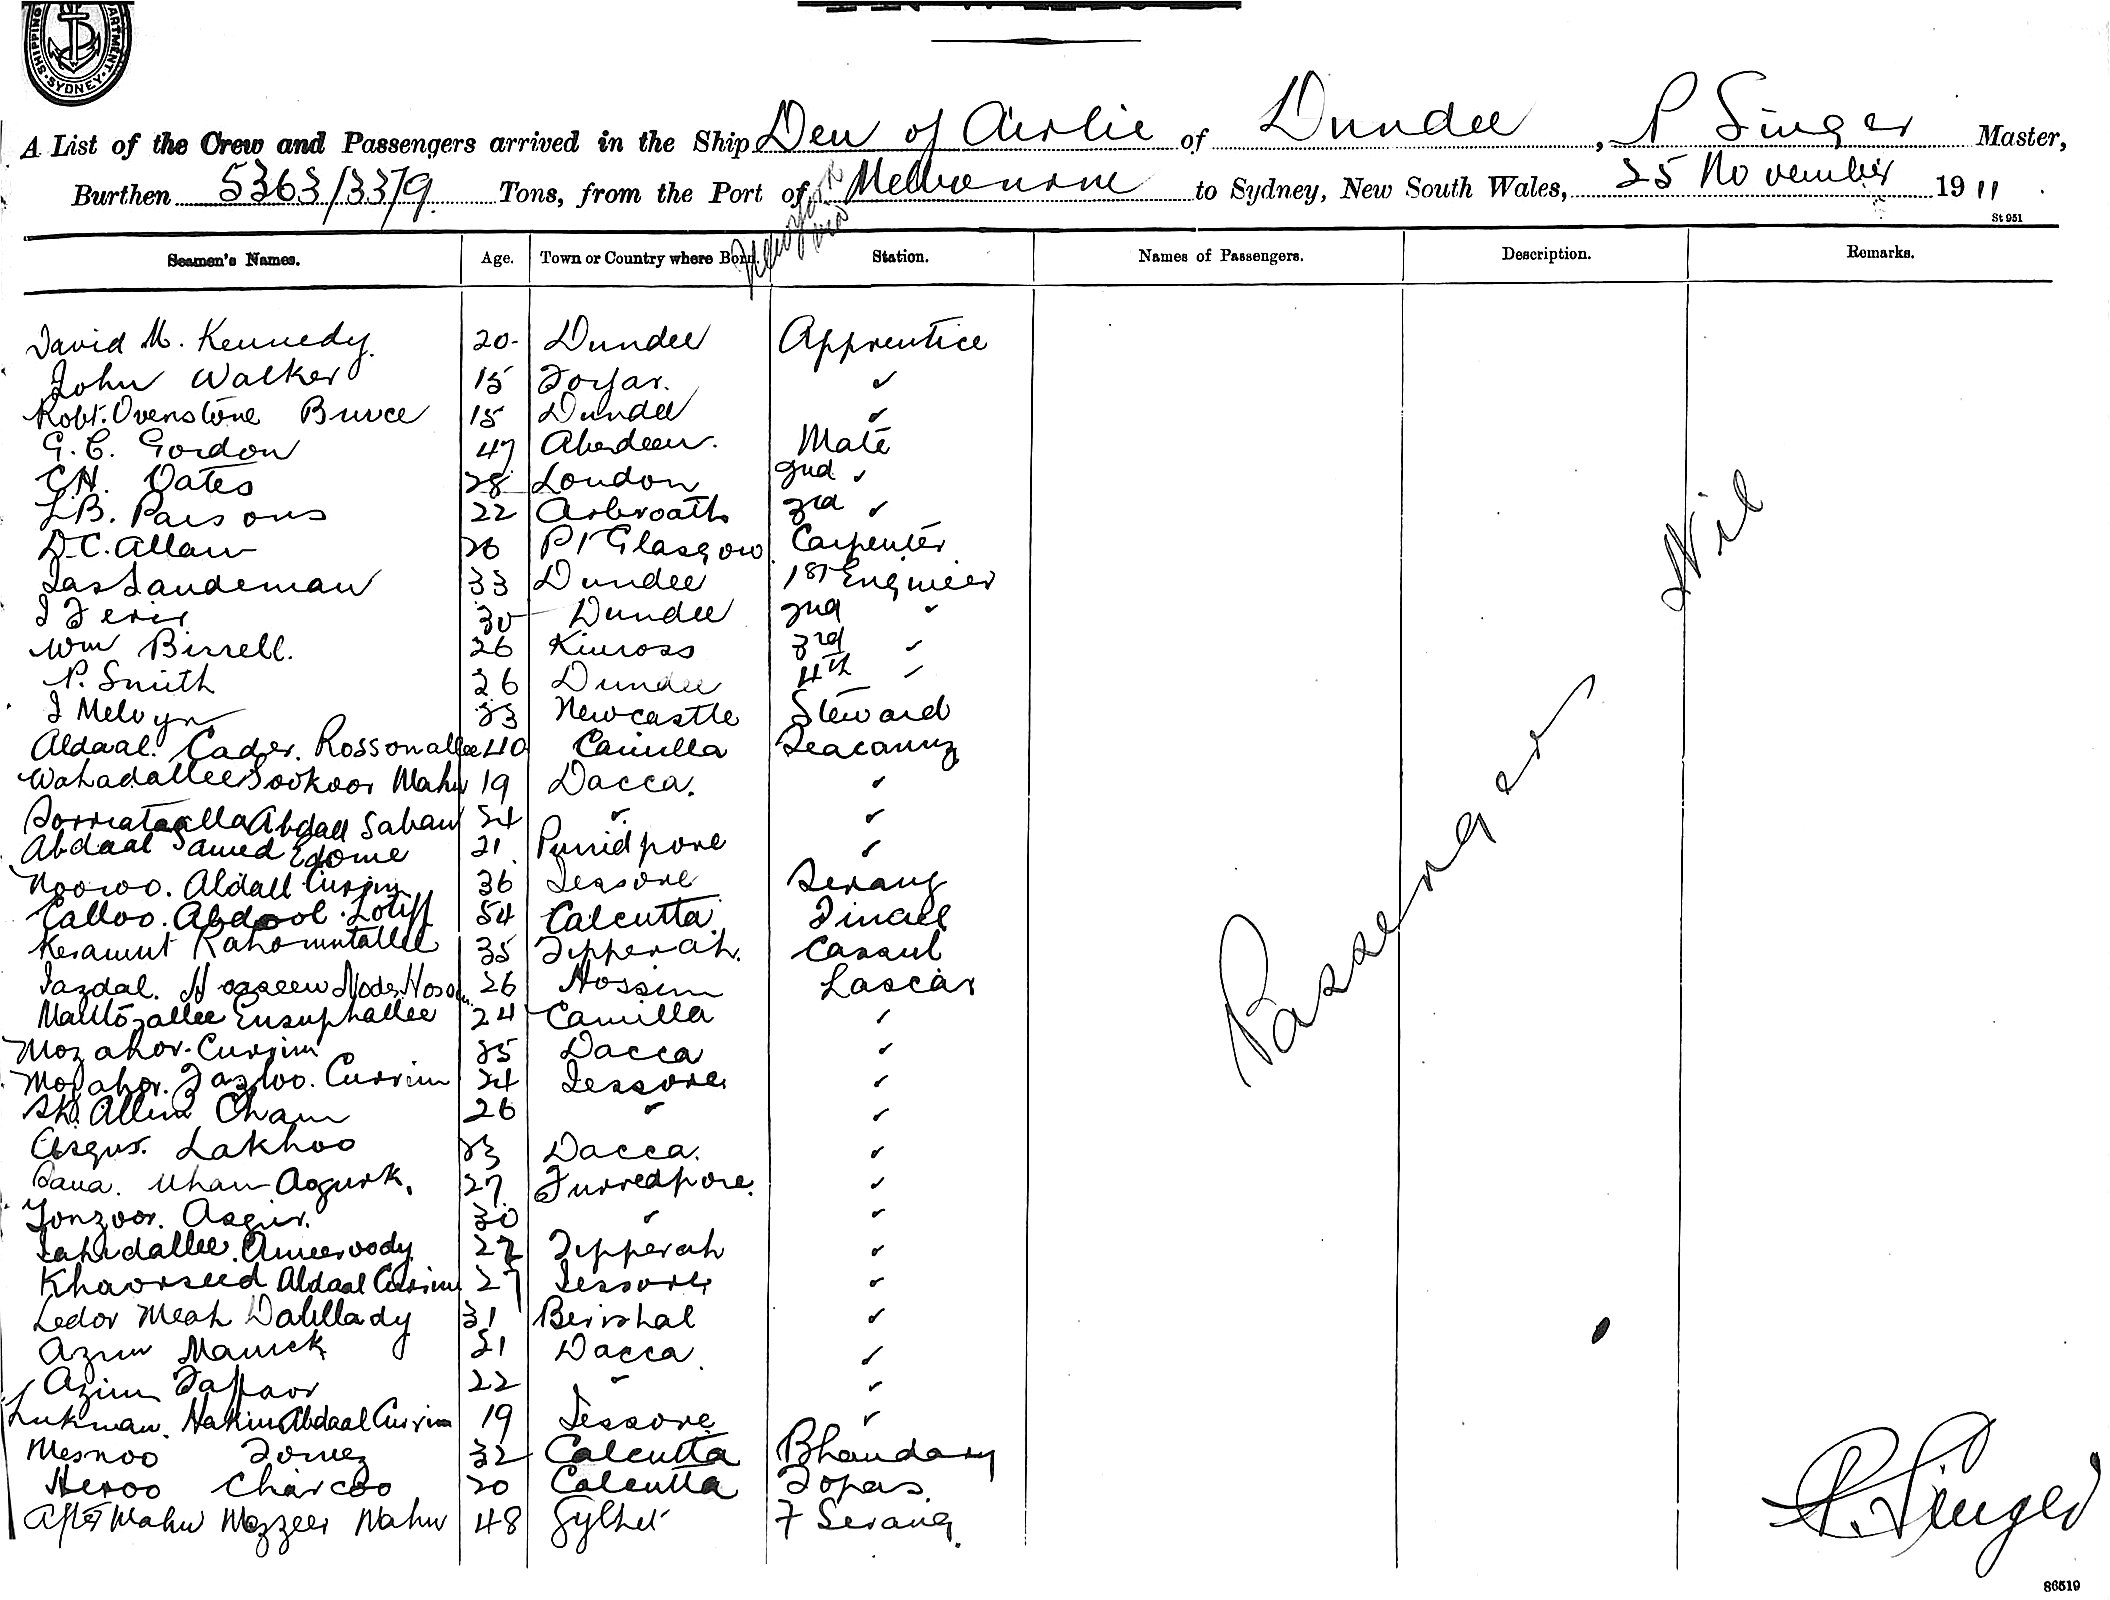 SHIPPING DEPARTMENT SYDNEY
A List of the Crew and Passengers arrived in the Ship Den of Airlie of Dundee, P Singer Master,
Burthen 5363/3379 Tons, from the Port of New York via Melbourne to Sydney, New South Wales, 25 November 1911.
St 951
Seamen's Names. Age. Town or Country where Born. Station. Names of Passengers. Description. Remarks.
David M. Kennedy 20 Dundee Apprentice
John Walker 15 Forfar. "
Robt. Ovenstone Bruce 15 Dundee "
G. C. Gordon 47 Aberdeen. Mate
C.H. Oates 28 London 2nd "
L.B. Parsons 22 Arbroath 3rd "
D.C. Allan 26 Pt Glasgow Carpenter
Jas Sandeman 33 Dundee 1st Engineer
30 Dundee 2nd "
Wm Birrell. 26 Kinross 3rd "
P. Smith 26 Dundee 4th "
J Melvyn 33 Newcastle Steward
Aldaal. Cader. Rossonallee 40 Camilla Seacunny
Wahadallee Sookoor Mahn 19 Dacca. "
Abdall Saban 24 " "
Abdaal Samed 21 "
Noowo. Aldall Currim 36 Jessore Serang
Calloo. Abdool. Lotiff 54 Calcutta. Tindel
Keramut Rahomutallee 35 Tipperah. Cassub
Fazdal. Hosseen 26 Hossim Lascar
Ensuphallee 24 Camilla "
Mozahor. Currim 35 Dacca "
Mozahor. Fazloo. Currim 24 Jessore "
Sk. Allim Cham 26 " "
Asgur. Lakhoo 23 Dacca. "
27 Furredpore. "
Asgur. 30 " "
Ameeroody 27 Tipperah "
Khaorseed Aldaal Currim 27 Jessore "
Ledor Meah Dalilady 31 Berishal "
Azim Manick 21 Dacca. "
Azim Jaffaor 22 " "
Lukman. Hakim Abdaal Currim 19 Jessore "
Mesnoo Gomez 32 Calcutta Bhandary
Heroo Charcoo 20 Calcutta Topas.
After Mahn Mozzeer Mahn 48 Sylhet F Serang.
Passengers Nil
P. Singer
86519